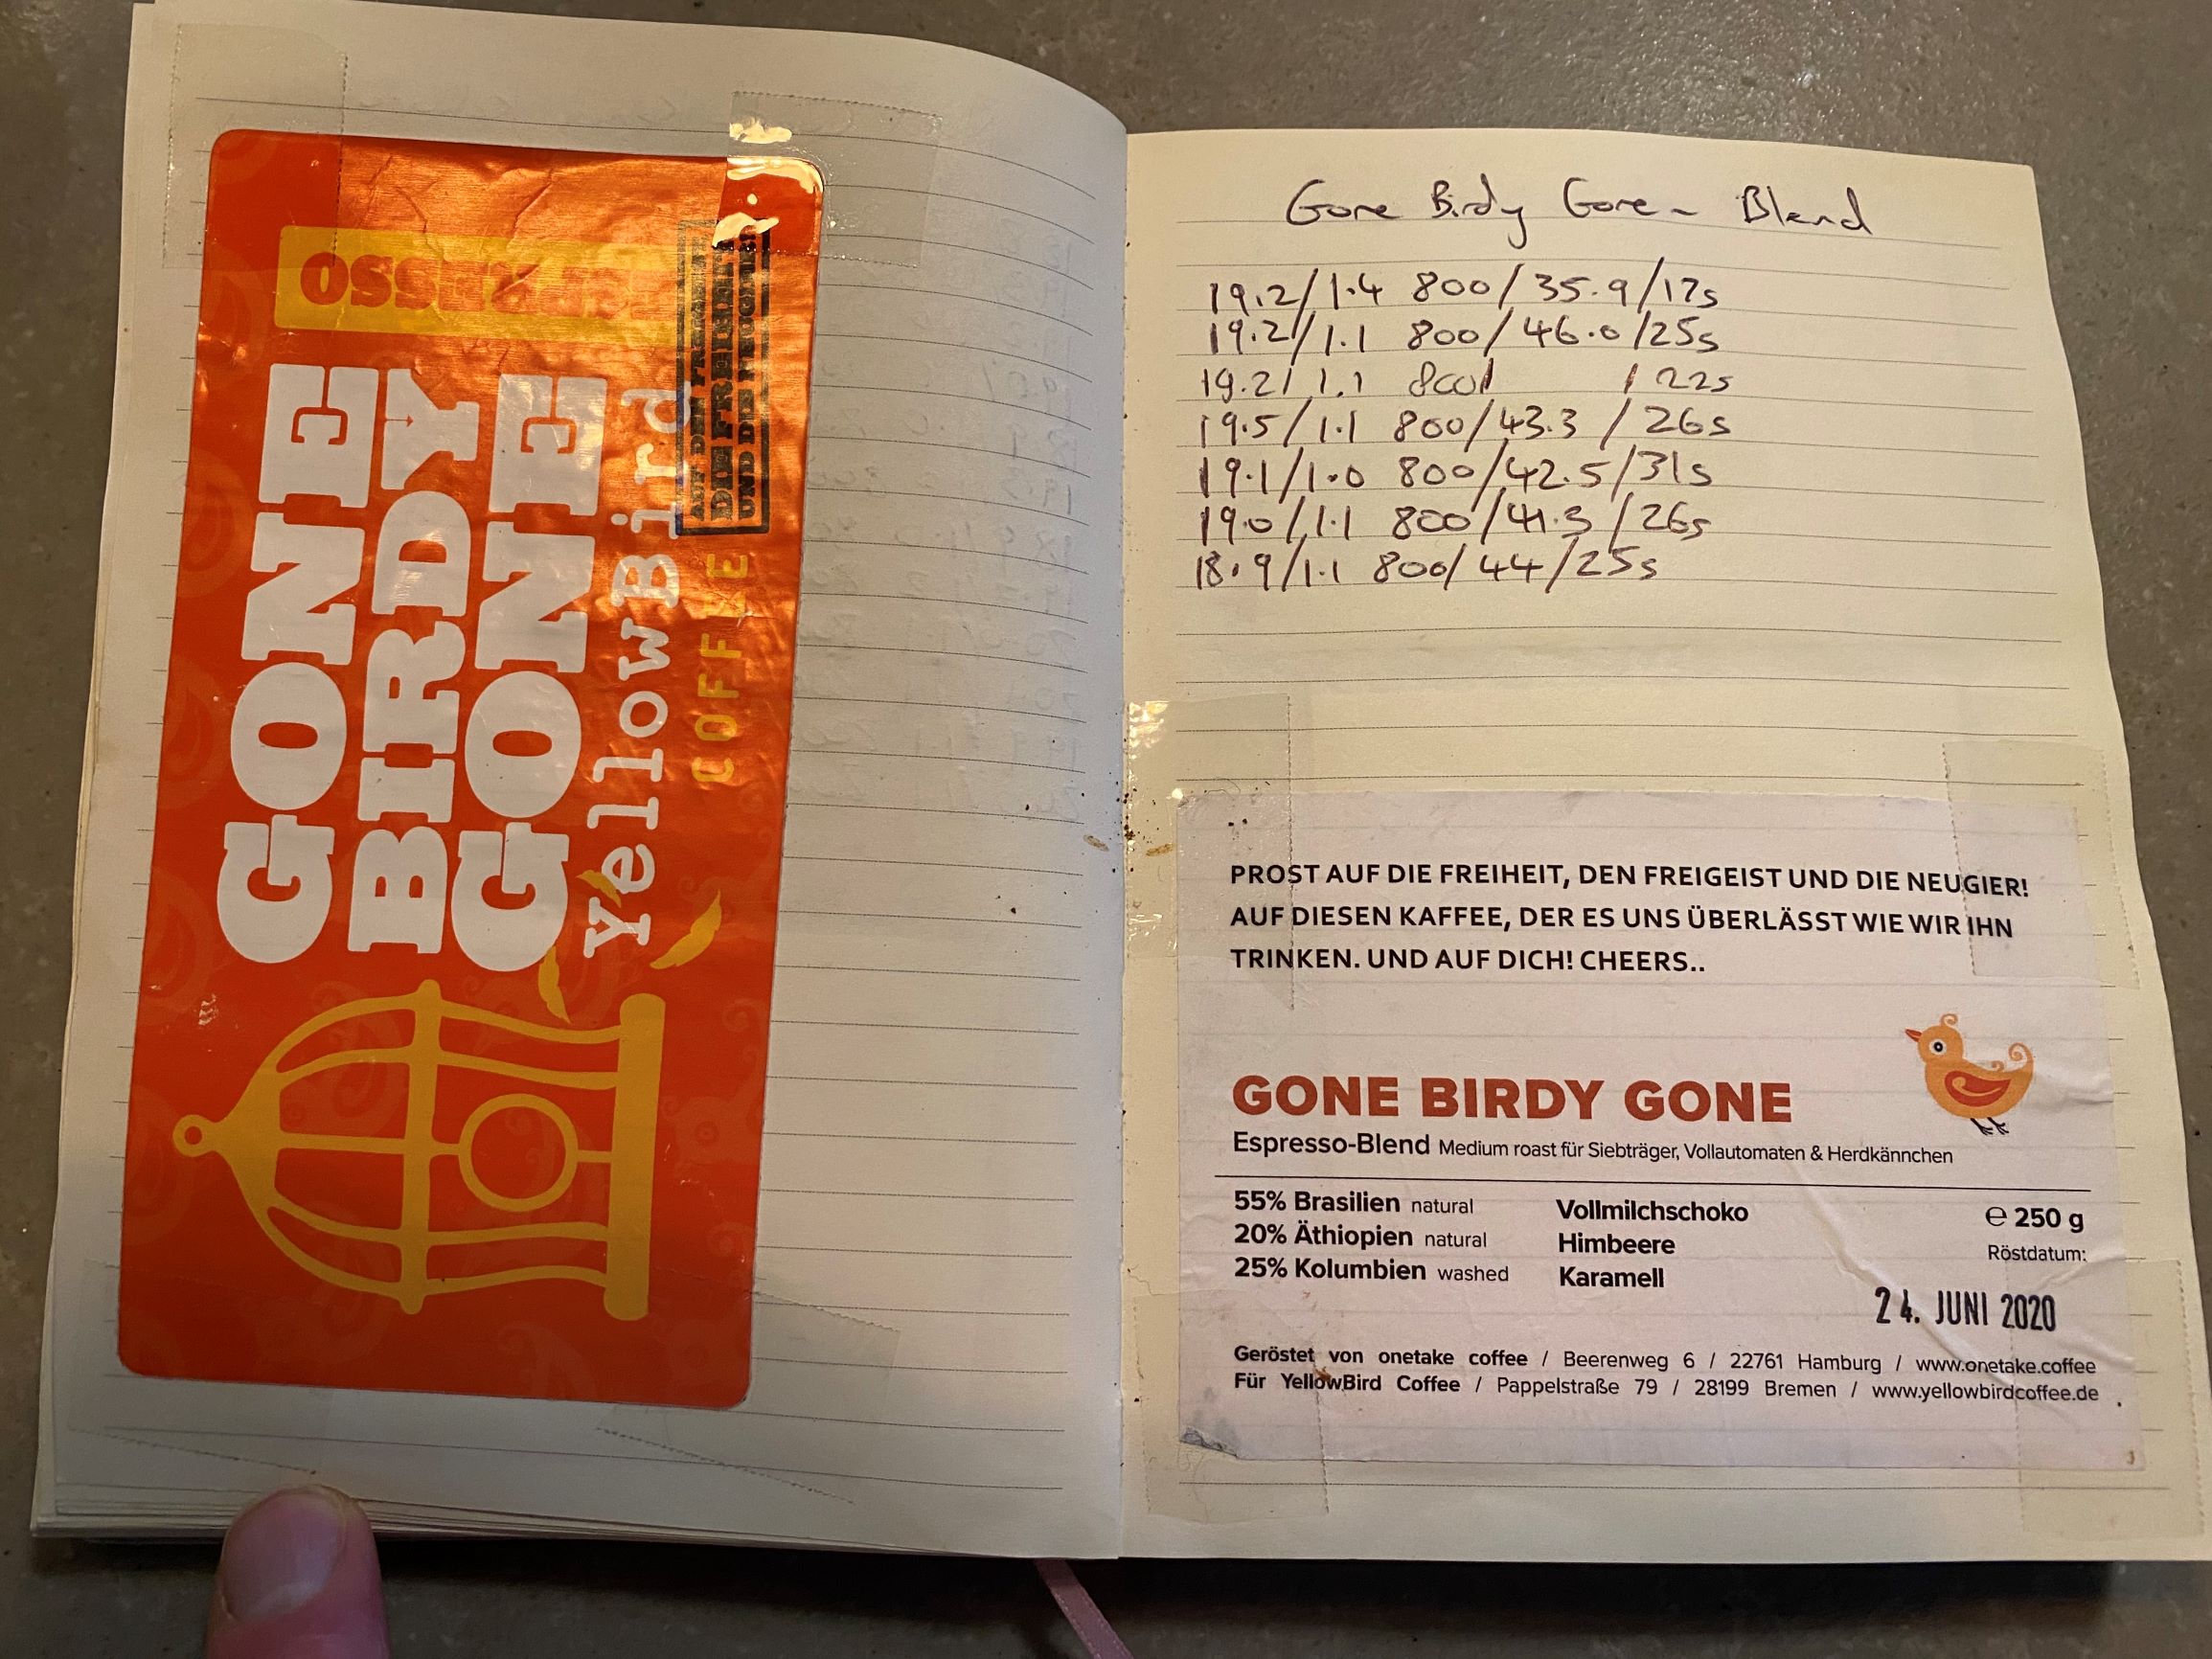 ESPRESSO
GONE
BIRDY
GONE
YellowBird
COFFEE
AUF DEN FREIGEIST
DIE FREIHEIT
UND DIE NEUGIER!
Gone Birdy Gone - Blend
19.2/1.4 800/35.9/17s
19.2/1.1 800/46.0/25s
19.2/1.1 800/ /22s
19.5/1.1 800/43.3/26s
19.1/1.0 800/42.5/31s
19.0/1.1 800/41.3/26s
18.9/1.1 800/44/25s
PROST AUF DIE FREIHEIT, DEN FREIGEIST UND DIE NEUGIER!
AUF DIESEN KAFFEE, DER ES UNS ÜBERLÄSST WIE WIR IHN
TRINKEN. UND AUF DICH! CHEERS..
GONE BIRDY GONE
Espresso-Blend Medium roast für Siebträger, Vollautomaten & Herdkännchen
55% Brasilien natural
20% Äthiopien natural
25% Kolumbien washed
Vollmilchschoko
Himbeere
Karamell
℮ 250 g
Röstdatum:
24. JUNI 2020
Geröstet von onetake coffee / Beerenweg 6 / 22761 Hamburg / www.onetake.coffee
Für YellowBird Coffee / Pappelstraße 79 / 28199 Bremen / www.yellowbirdcoffee.de